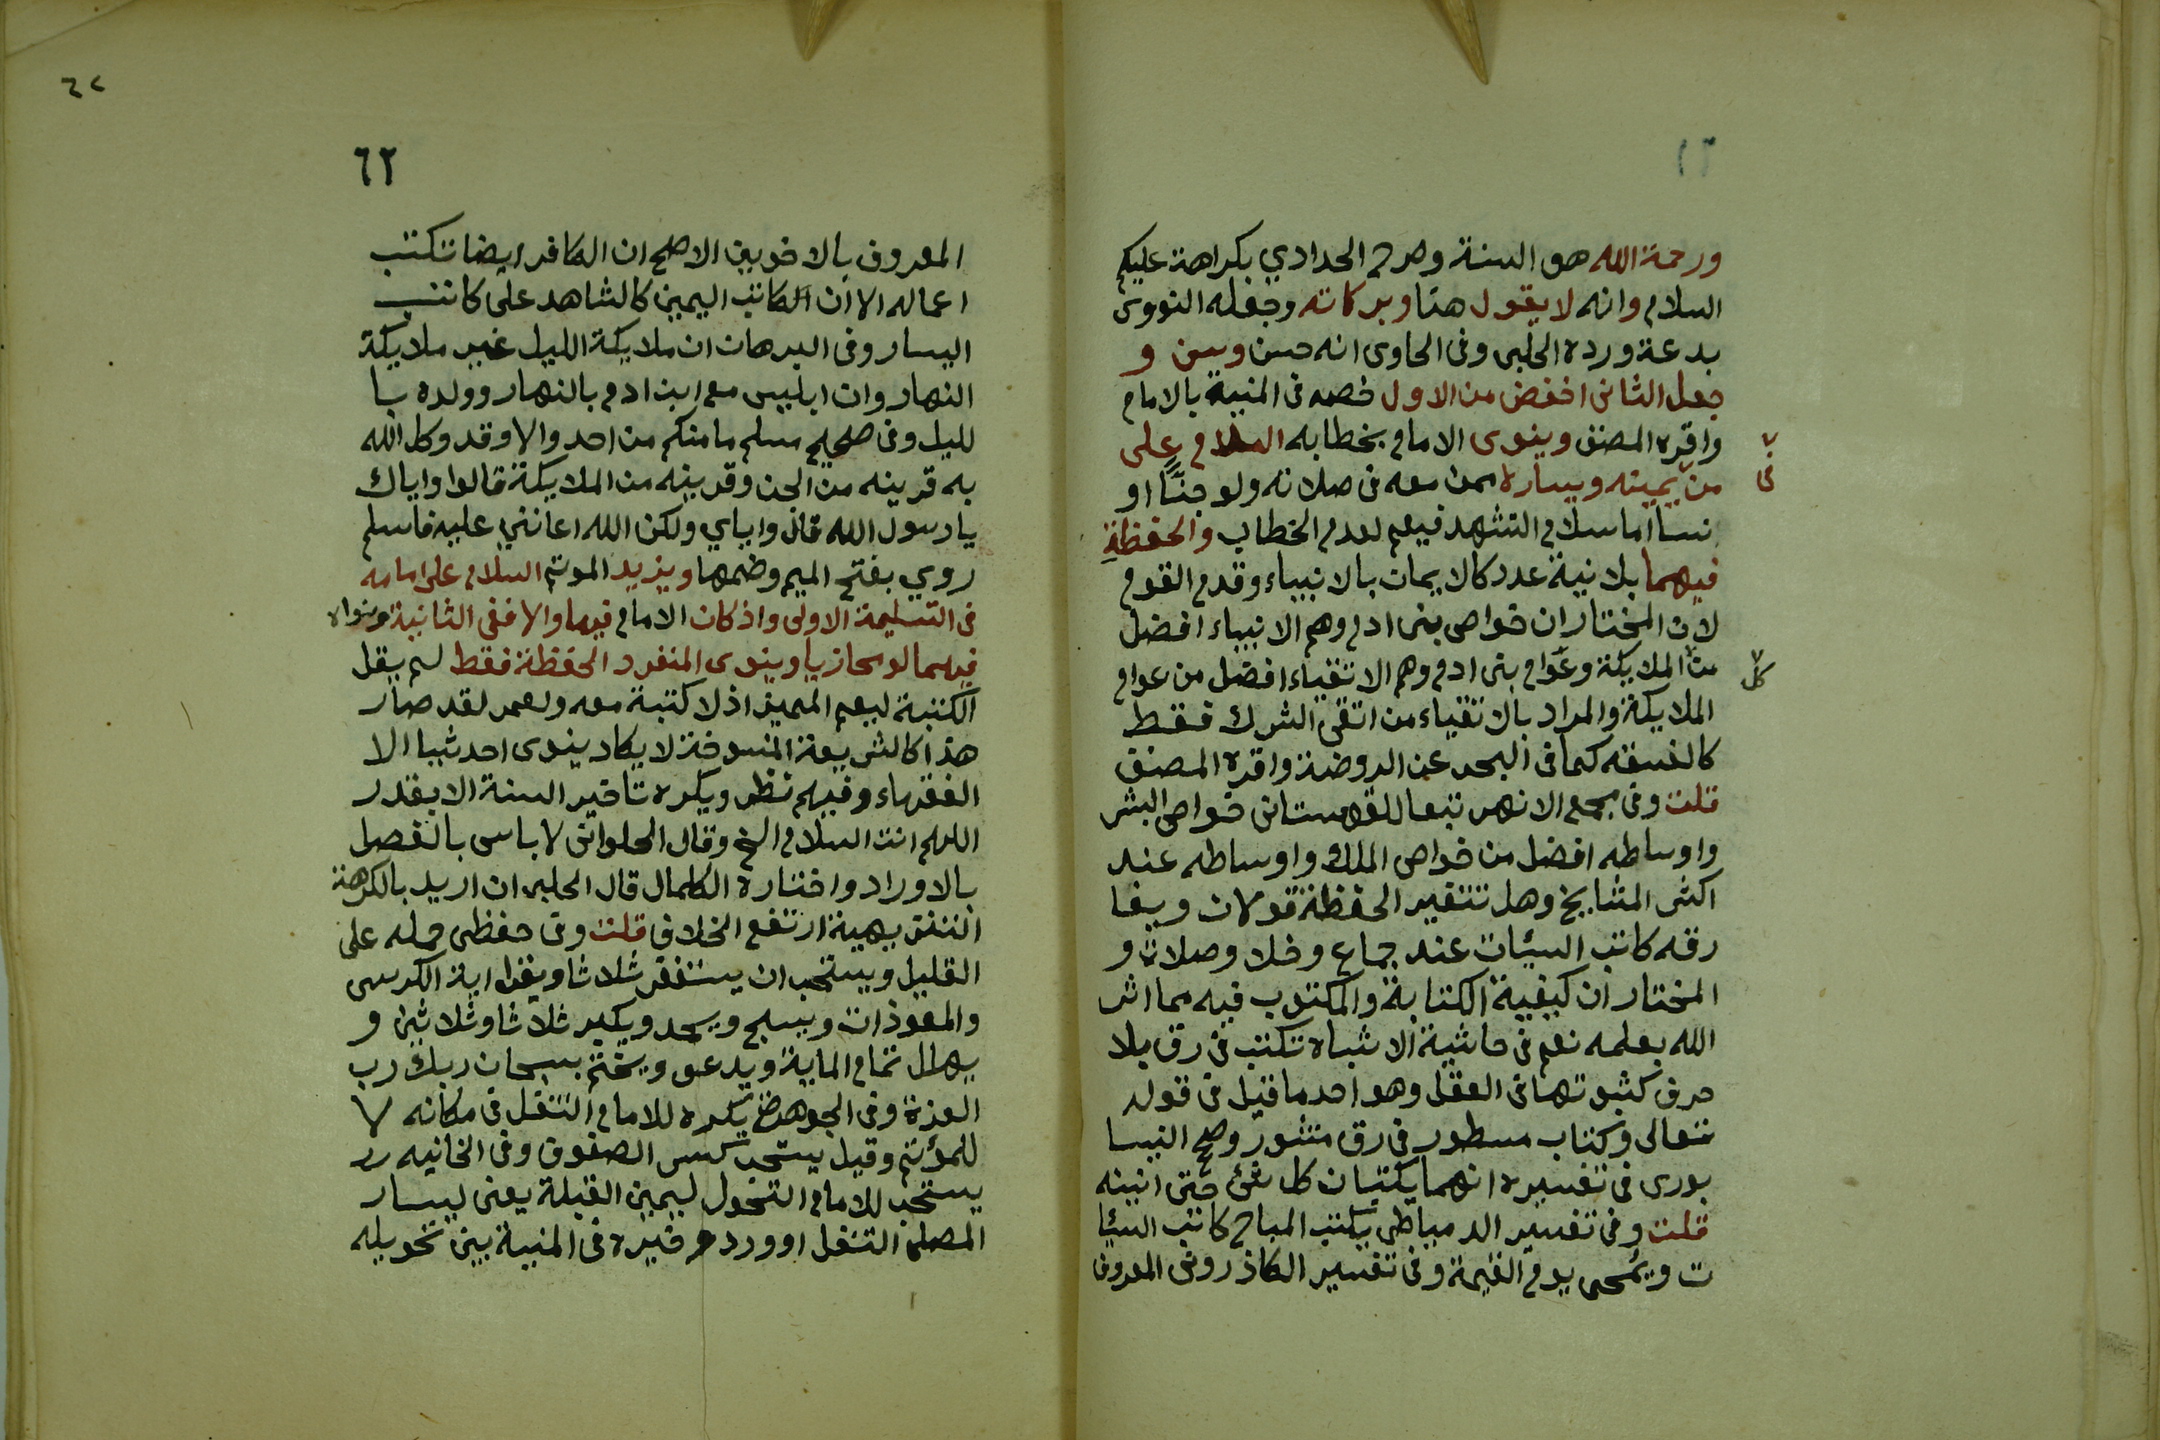 ورحمة الله هو السنة وصرح الحدادي بكراهة عليكم
السلام وانه لا يقول هنا وبركاته وجعله النووى
بدعة ورده الحلبى وفى الحاوى انه حسن وسن و
جعل الثانى اخفض من الاول خصه فى المنية بالامام
واقره المصنف وينوى الامام بخطابه السلام على
من يمينه ويساره ممن معه فى صلاته ولو جنًّا او
نسأ اما سلام التشهد فيعم لعدم الخطاب والحفظة
فيهما بلا نية عدد كالايمان بالانبياء وقدم القوم
لان المختار ان خواص بنى ادم وهم الانبياء افضل
من الملايكة وعوام بنى ادم وهم الاتقياء افضل من عوام
كل
الملايكة والمراد بالاتقياء من اتقى الشرك فقط
كالفسقه كما فى البحر عن الروضة واقره المصنف
قلت وفى مجمع الانهر تبعا للقهستانى خواص البشر
واوساطه افضل من خواص الملك واوساطه عند
اكثر المشايخ وهل تتغير الحفظة قولان ويفا
رقه كاتب السيئات عند جماع وخلا وصلاة و
المختار ان كيفية الكتابة والمكتوب فيه مما اثر
الله بعلمه نعم فى حاشية الاشباه تكتب فى رق بلا
حرف كثبوتها فى العقل وهو احد ما قيل فى قوله
تعالى وكتاب مسطور فى رق منشور وصحح النيسا
بورى فى تفسيره انهما يكتبان كل شئ حتى انينه
قلت وفى تفسير الدمياطى يكتب المباح كاتب السيئا
ت ويمحى يوم القيمة وفى تفسير الكاذرونى المعروف
٦٢
٦٢
المعروف بالاخوين الاصح ان الكافر ايضا تكتب
اعماله الا ان الكاتب اليمين كالشاهد على كاتب
اليسار وفى البرهان ان ملايكة الليل غير ملايكة
النهار وان ابليس مع ابن ادم بالنهار وولده با
لليل وفى صحيح مسلم ما منكم من احد والا وقد وكل الله
به قرينه من الجن وقرينه من الملايكة قالوا واياك
يا رسول الله قال واياي ولكن الله اعاننى عليه فاسلم
روي بفتح الميم وضمها ويزيد الموتم السلام على امامه
فى التسليمة الاولى واذ كان الامام فيها والا ففى الثانية ونواه
فيهما لو محازيا وينوى المنفرد الحفظة فقط لم يقل
الكتبة ليعم المميز اذ لا كتبة معه ولعمر لقد صار
هذا كالشريعة المنسوخة لا يكاد ينوى احد شيا الا
الفقهاء وفيهم نظر ويكره تاخير السنة الا بقدر
اللهم انت السلام الخ وقال الحلوانى لا باس بالفصل
بالاوراد واختاره الكمال قال الحلبى ان اريد بالكرهة
التنزيهية ارتفع الخلاف قلت وفى حفظى حمله على
القليل ويستحب ان يستغفر ثلاثا ويقرا اية الكرسى
والمعوذات ويسبح ويحمد ويكبر ثلاثا وثلاثين و
يهلل تمام الماية ويدعو ويختم بسبحان ربك رب
العزة وفى الجوهرة يكره للامام التنفل فى مكانه لا
للمؤتم وقيل يستحب كسر الصفوف وفى الخانيه
يستحب للامام التحول ليمين القبلة يعنى ليسار
المصلى التنفل او ورد وخيره فى المنية بين تحويله